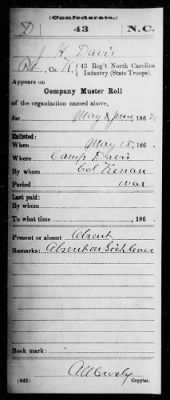 (Confederate.)
D 43 N.C.
J H Davis
Pvt, Co. K, 43 Reg't North Carolina
Infantry (State Troops).
Appears on
Company Muster Roll
of the organization named above,
for May & June, 186
Enlisted:
When May 15, 186 .
Where Camp Davis
By whom Col Kenan
Period war
Last paid:
By whom
To what time , 186 .
Present or absent Absent
Remarks: Absent on Sick leave
Book mark:
(642) Copyist.